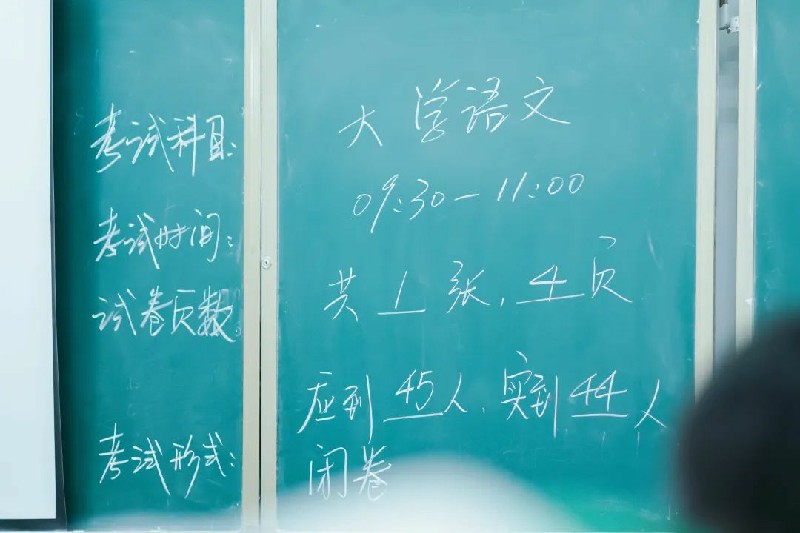 考试科目: 大学语文
考试时间: 09:30-11:00
试卷页数: 共1张,4页
应到45人,实到44人
考试形式: 闭卷